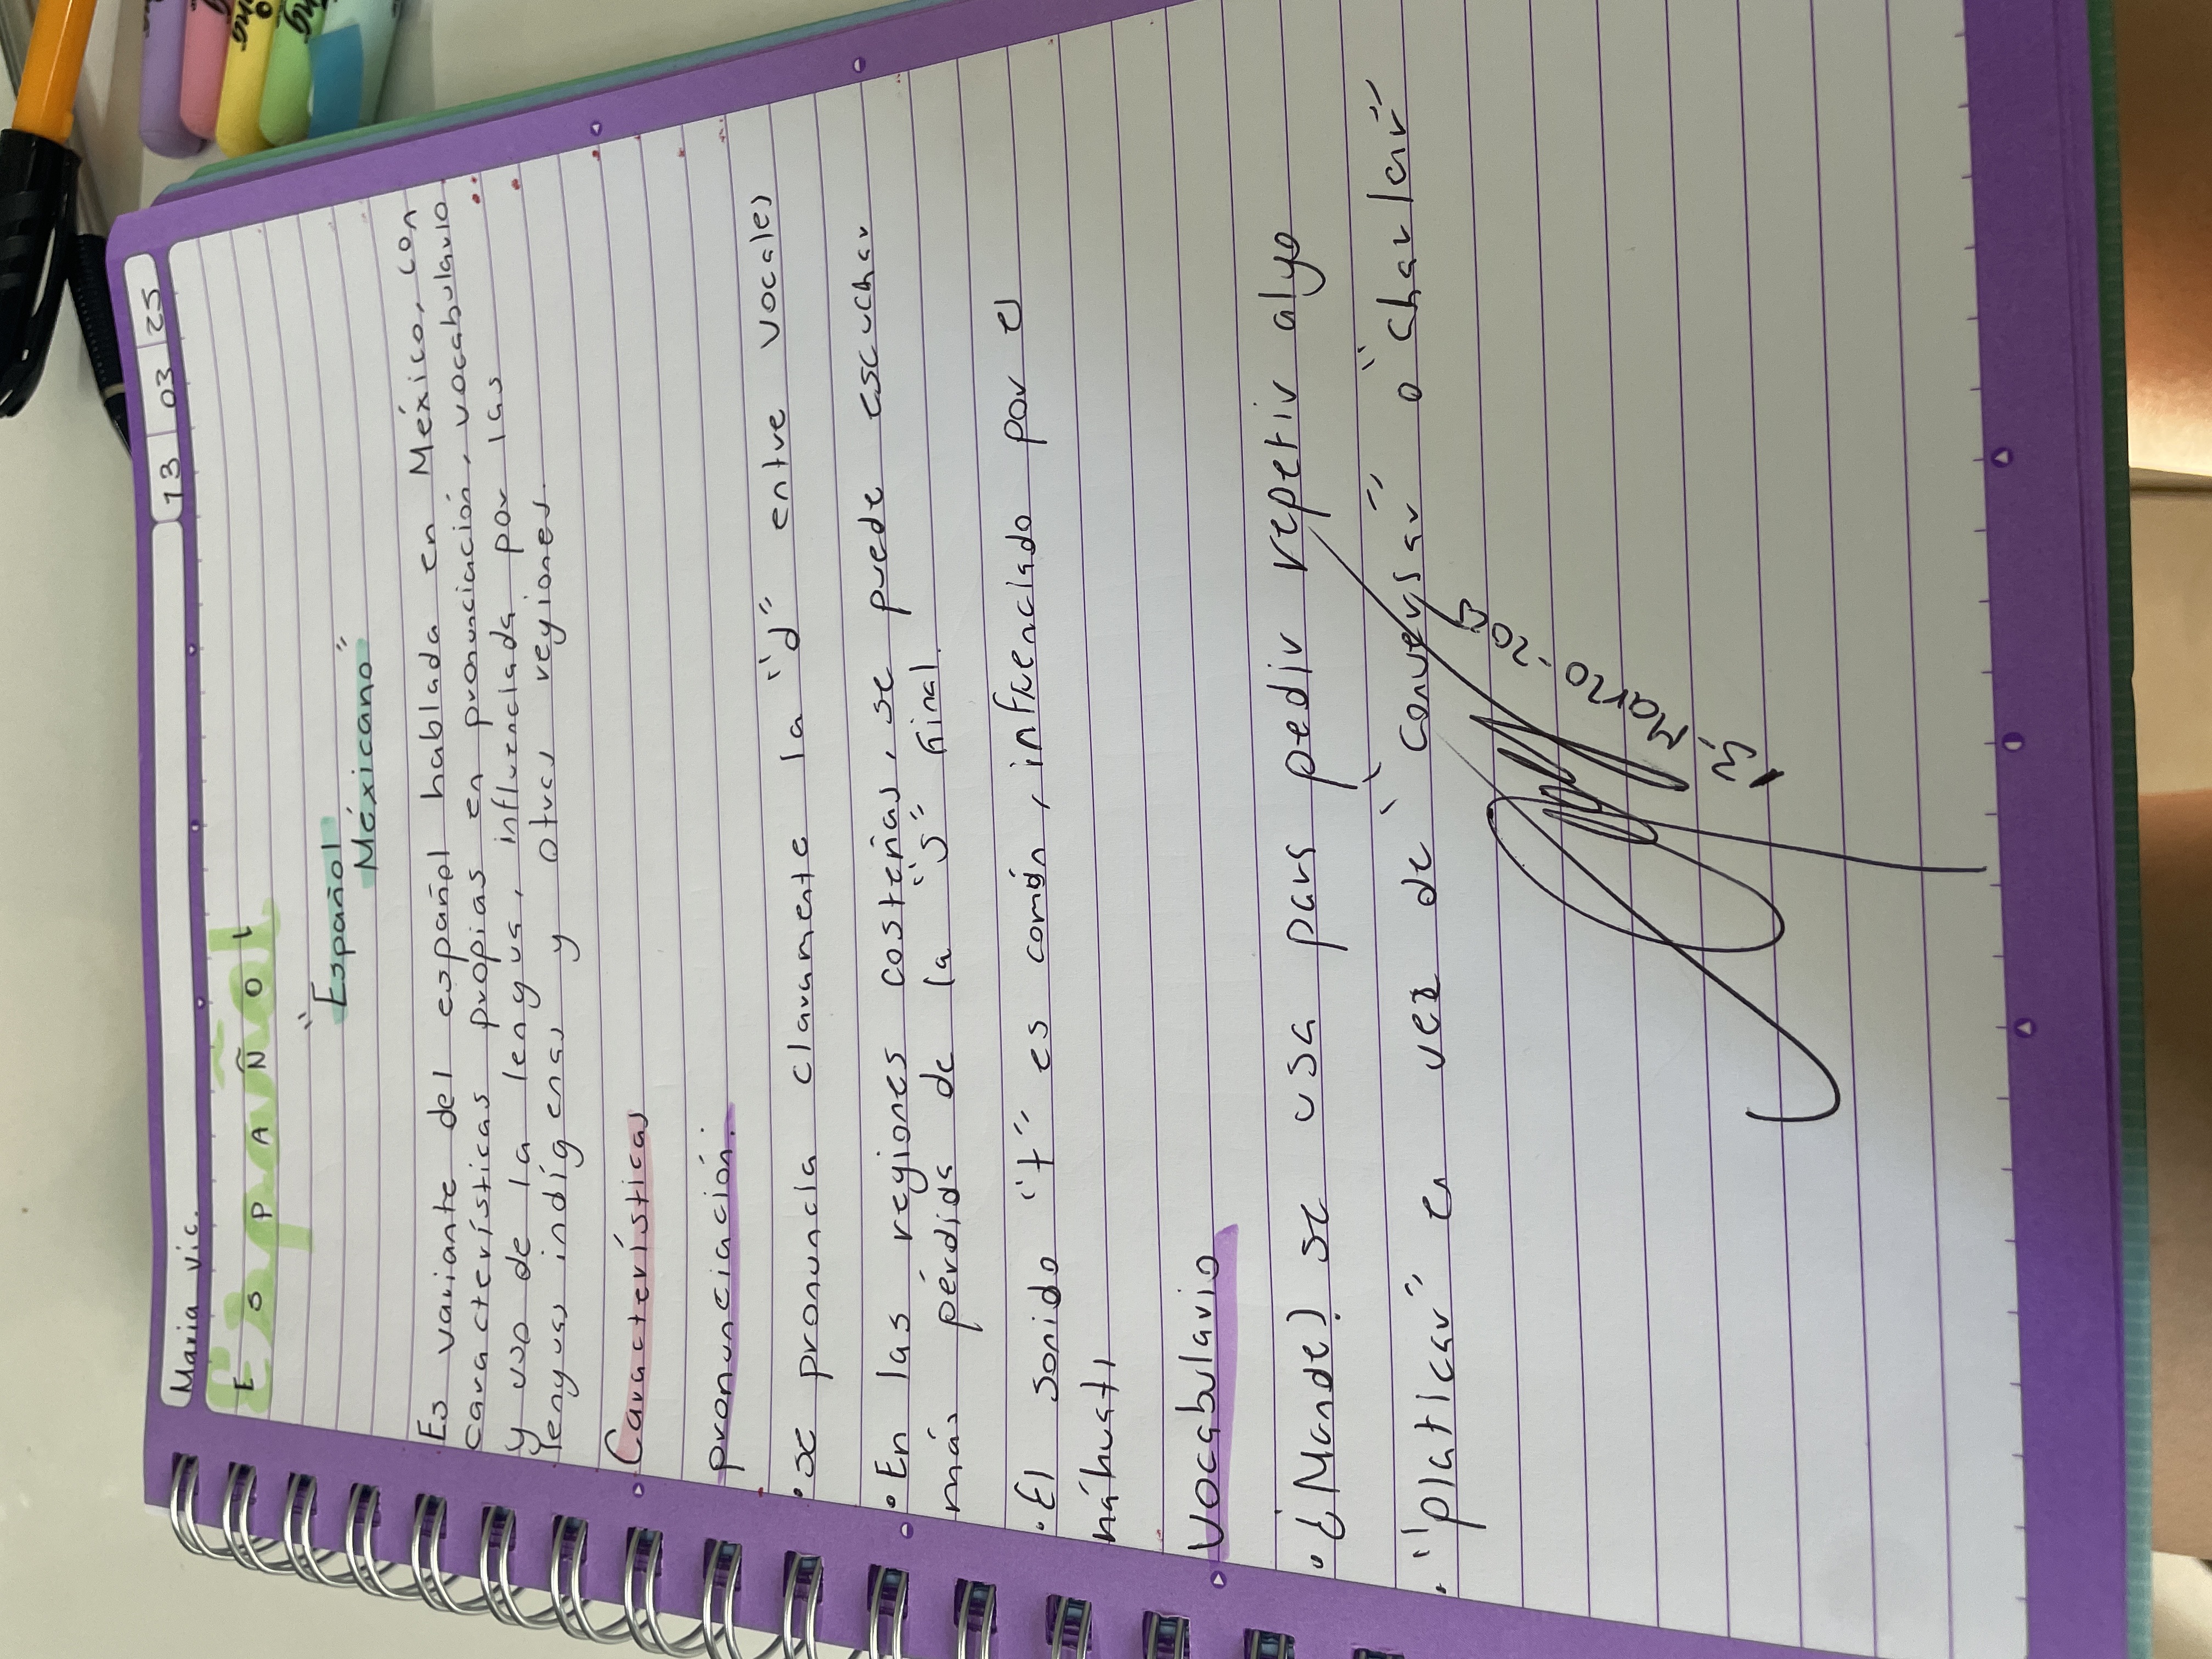 Maria vic.
13 03 25
ESPAÑOL
"Español
Méxicano"
Es variante del español hablada en México, con
características propias en pronunciación, vocabulario
y uso de la lengua, influenciada por las
lenguas indígenas y otras regiones.
Características
pronunciación:
• se pronuncia claramente la "d" entre vocales
• En las regiones costeñas, se puede escuchar
más pérdida de la "s" final.
• El sonido "t" es común, influenciado por el
náhuatl
Vocabulario
• ¿Mande? se usa para pedir repetir algo
• "platicar" en vez de "conversar" o "charlar"
Marzo